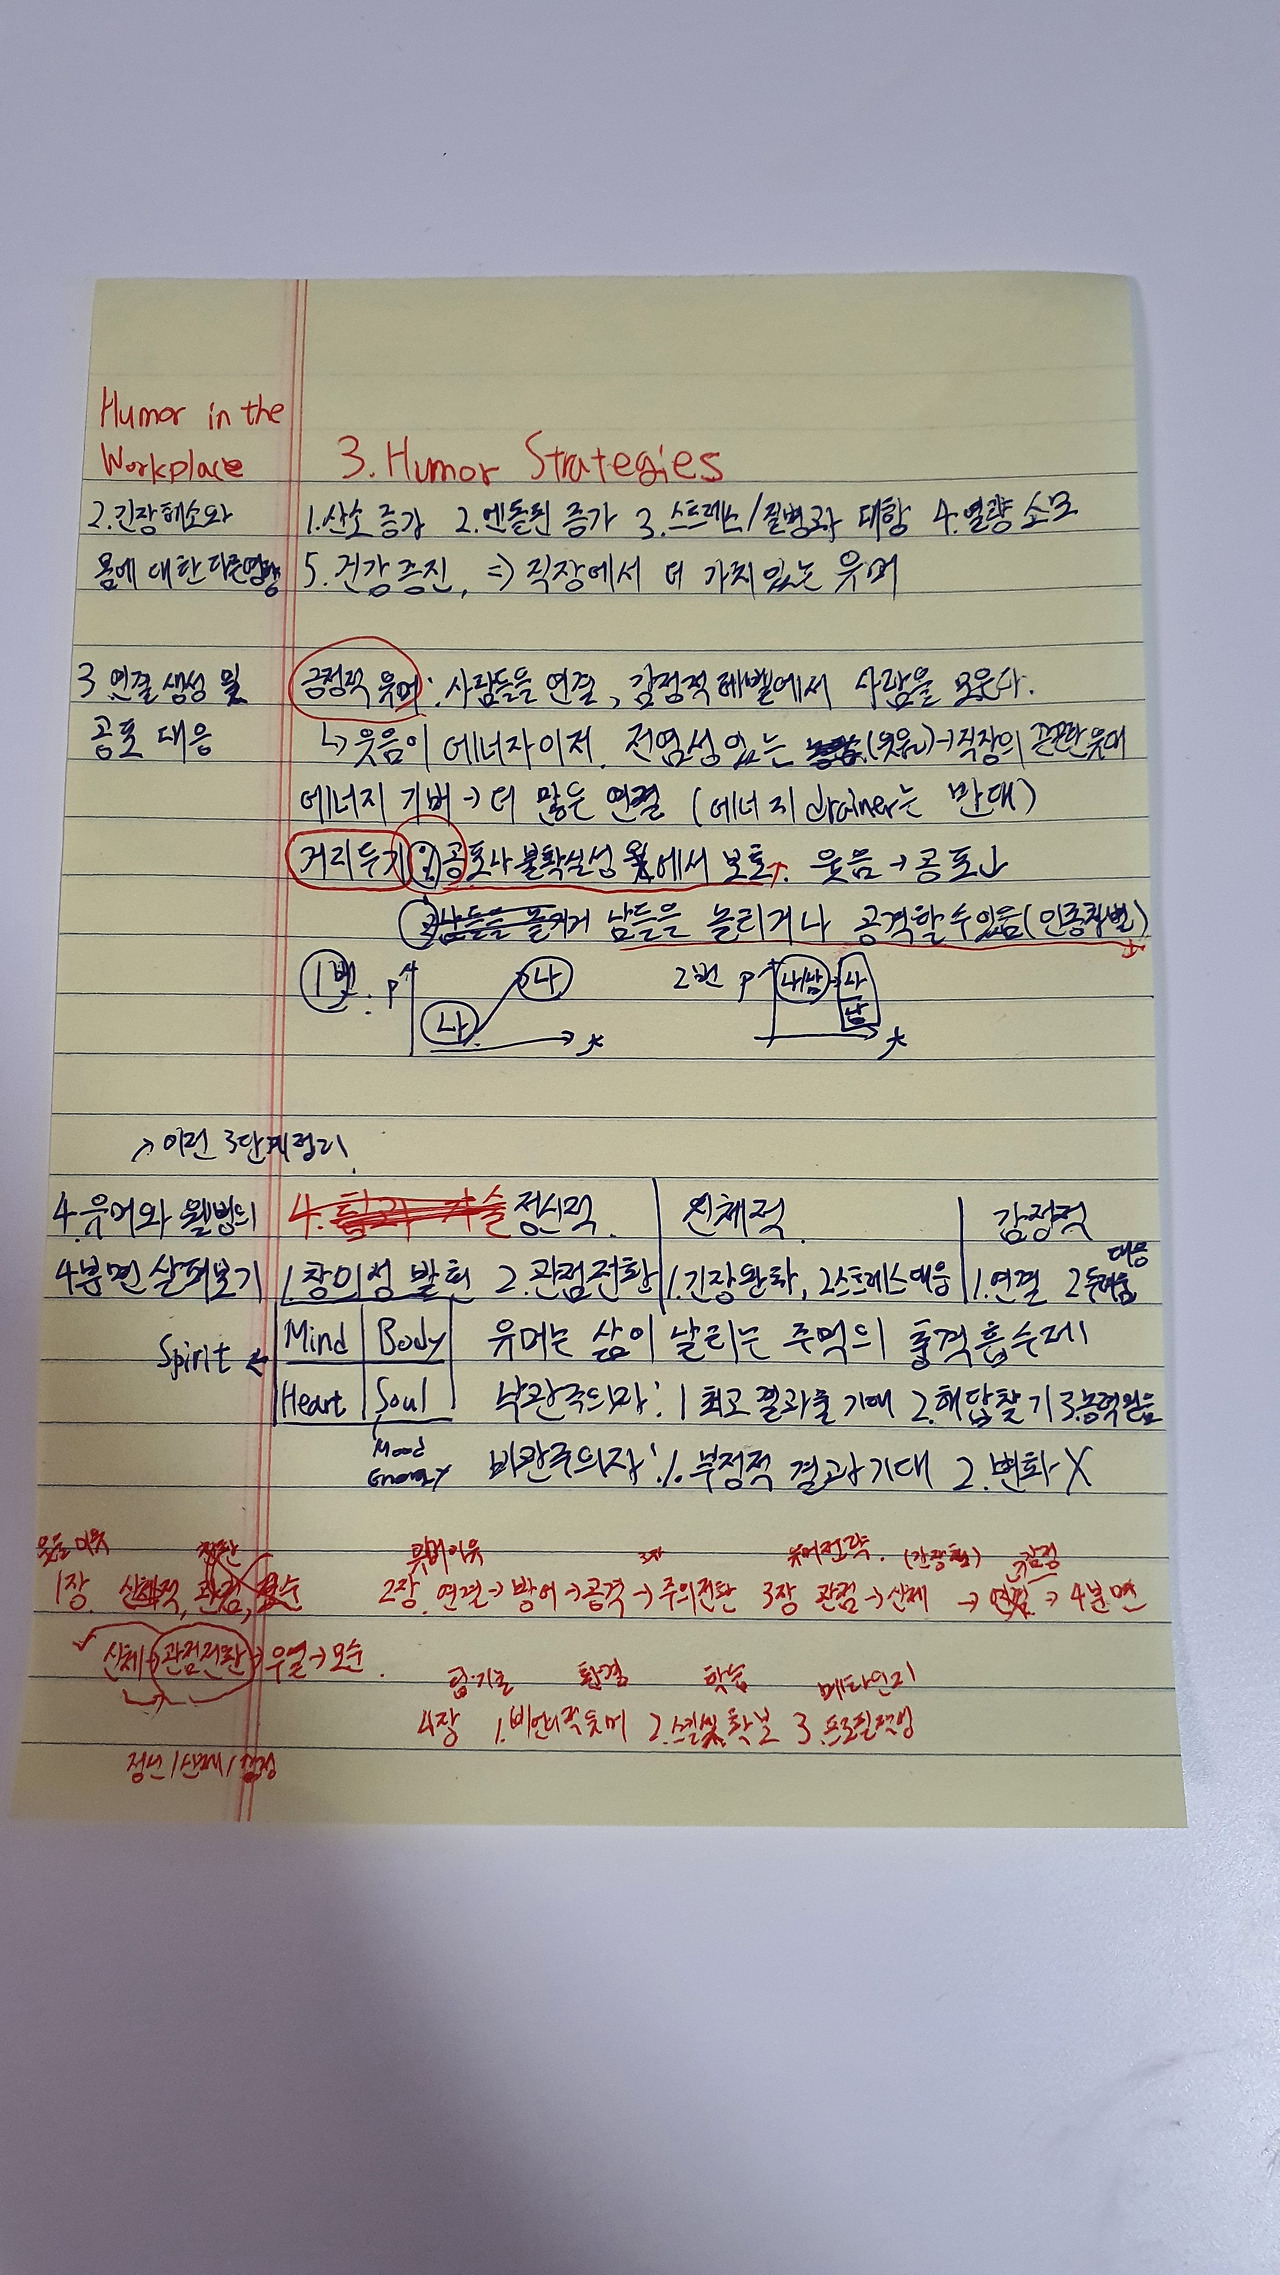 Humor in the
Workplace 3. Humor Strategies
2. 긴장해소와 1. 산소 증가 2. 엔돌핀 증가 3. 스트레스/질병과 대항 4. 열량 소모
몸에 대한 다른영향 5. 건강증진, => 직장에서 더 가치있는 유머
3 연결 생성 및 긍정적 유머: 사람들을 연결, 감정적 레벨에서 사람을 모은다.
공포 대응 ↳ 웃음이 에너자이저. 전염성 있는 (웃음) → 직장의 끈끈한 유대
에너지 기버 → 더 많은 연결 (에너지 drainer는 반대)
거리두기 ① 공포나 불확실성 에서 보호↑. 웃음 → 공포↓
② 남들을 놀리거나 공격할 수 있음 (인종차별)
1번. P 나 나 t 2번 P 나/남 → 나 남 t
↗ 이런 3단계정리.
4. 유머와 웰빙의 4. 정신적. 신체적. 감정적
4분면 살펴보기 1. 창의성 발휘 2. 관점전환 1. 긴장완화, 2. 스트레스대응 1. 연결 2. 두려움 대응
Spirit ← Mind Body 유머는 삶이 날리는 주먹의 충격흡수제
Heart Soul 낙관주의자: 1 최고결과를 기대 2. 해답찾기 3. 능력믿음
Mood
Energy 비관주의자: 1. 부정적 결과기대 2. 변화 X
웃는 이유 전환 유머이유 3장 유머전략. (긴장완) 감정
1장. 신체적, 관점, 모순 2장. 연결 → 방어 → 공격 → 주의전환 3장 관점 → 신체 → 연결 → 4분면
신체 → 관점전환 → 우열 → 모순.
환경 학습 메타인지
4장 1. 비언어적유머 2. 스킬및확보 3. 프로필작성
정신/신체/감정